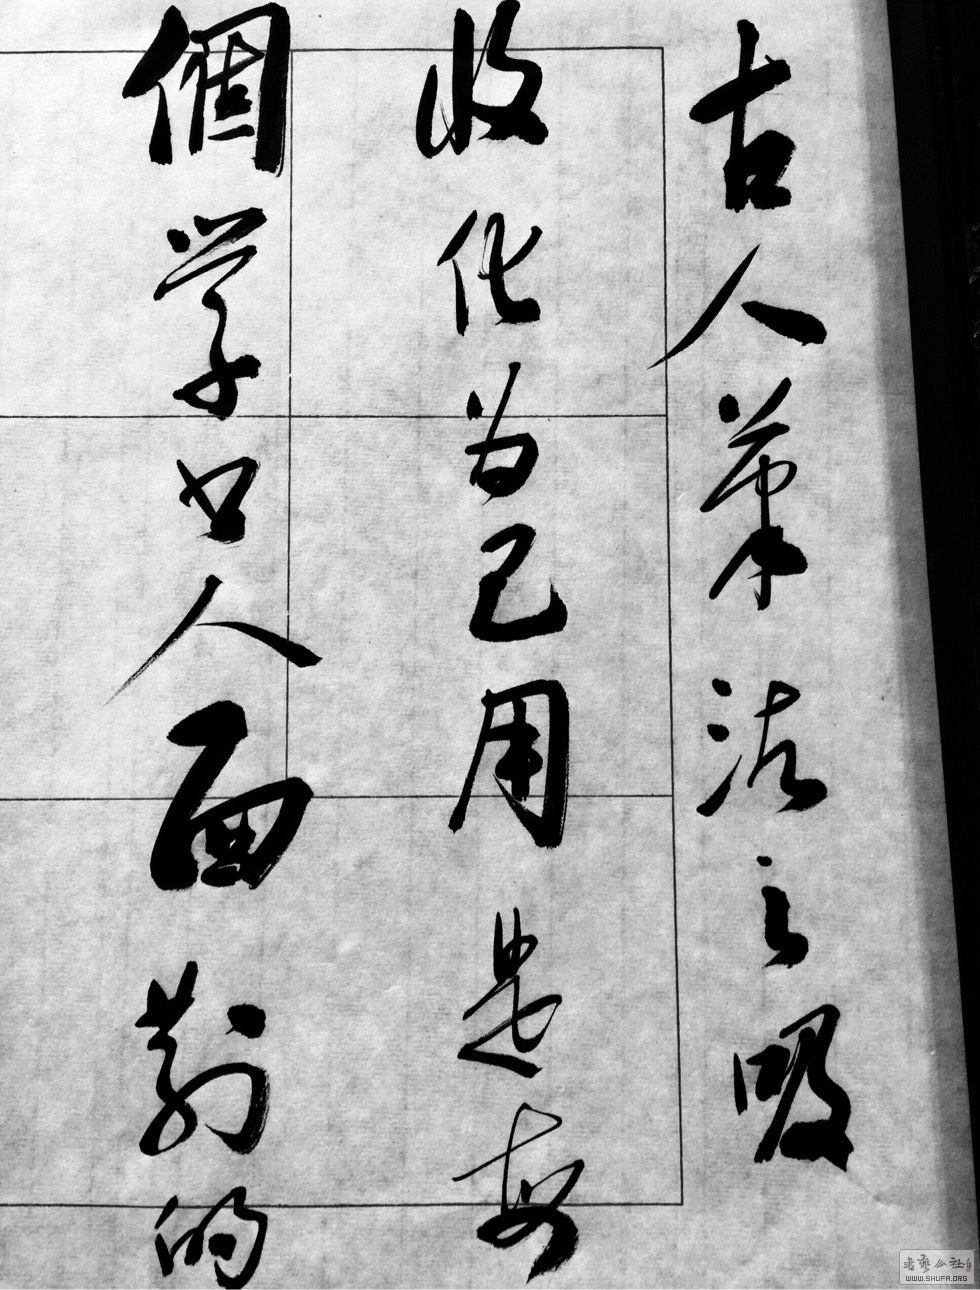 古人筆法之吸
收化為己用是每
個学書人面對的
書藝公社
WWW.SHUFA.ORG